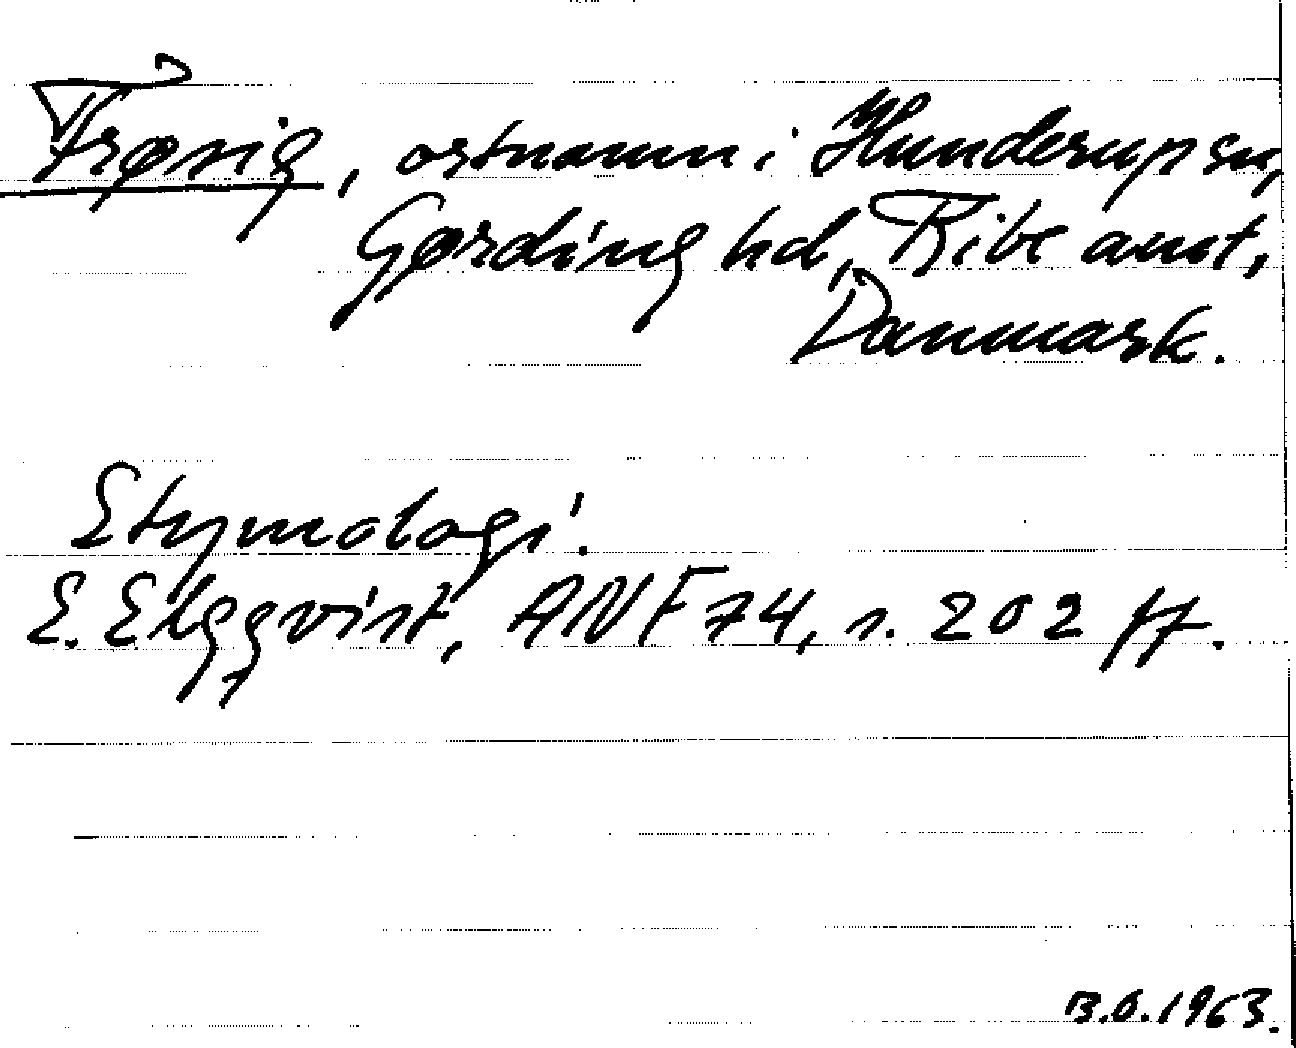 Frøsig, ortnamn i Hunderup sn,
Gørding hd, Ribe amt,
Danmark.
Etymologi.
E. Elgqvist, ANF 74, s. 202 ff.
B.O. 1963.